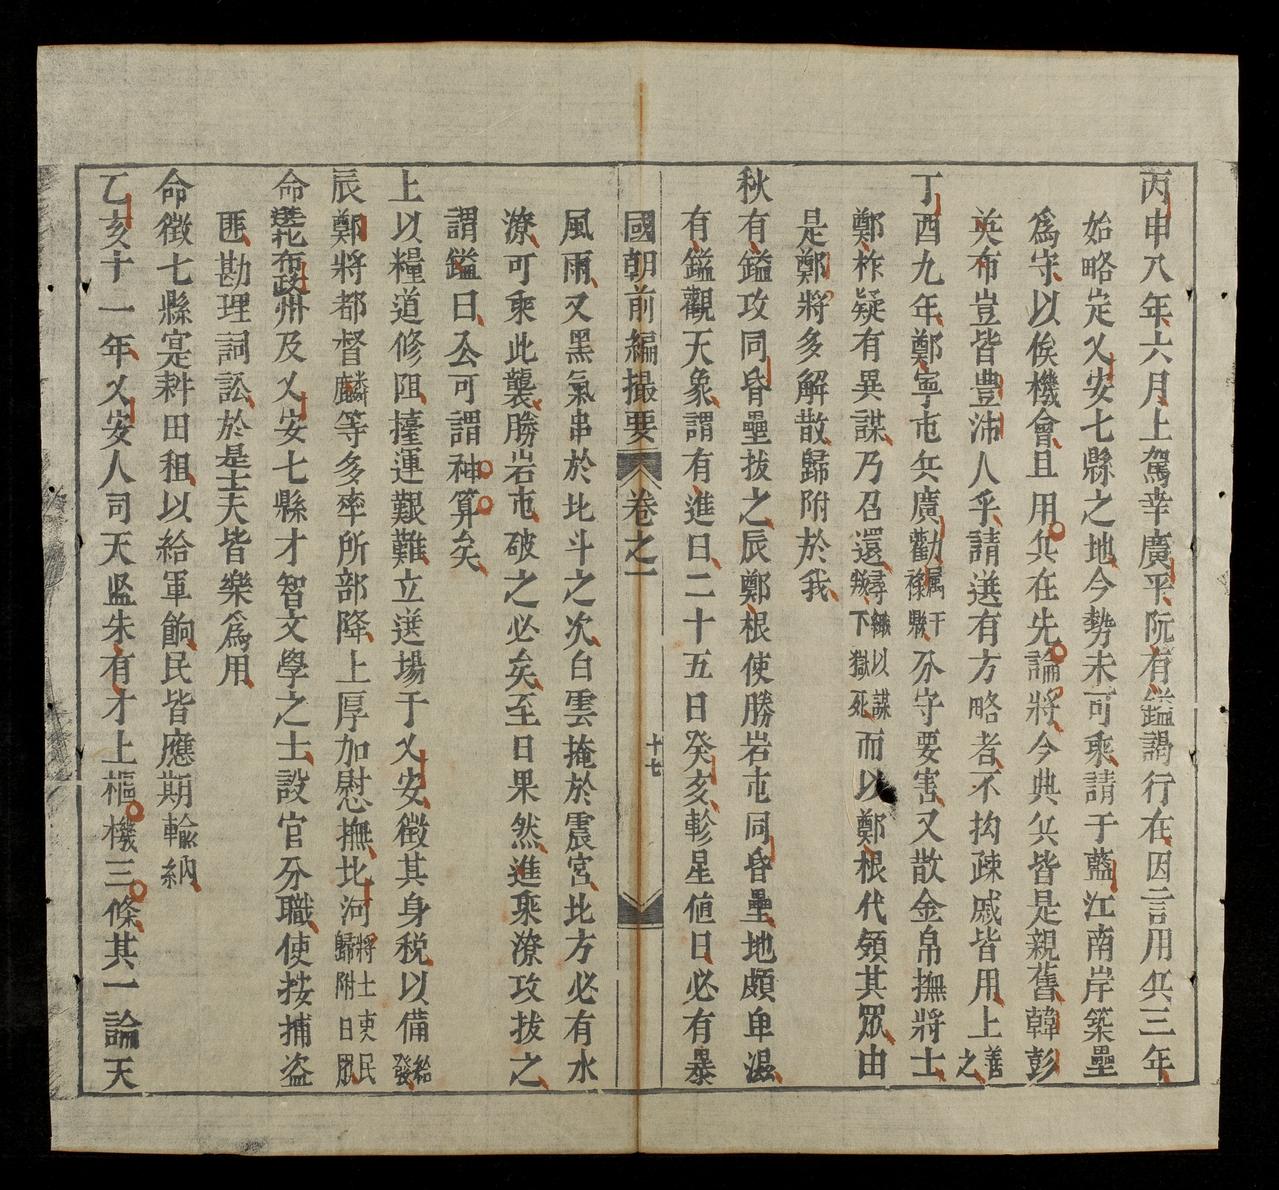 丙申八年六月上駕幸廣平阮有鎰謁行在因言用兵三年
始略定乂安七縣之地今勢未可乘請于藍江南岸築壘
爲守以俟機會且用兵在先論將今典兵皆是親舊韓彭
英布豈皆豊沛人乎請選有方略者不拘疎戚皆用上善之
丁酉九年鄭寧屯兵廣勸属干祿縣分守要害又散金帛撫將士
鄭柞疑有異謀乃召還尋織以謀叛下獄死而以鄭根代領其眾由
是鄭將多解散歸附於我
秋有鎰攻同昏壘拔之辰鄭根使勝岩屯同昏壘地頗卑濕
有鎰觀天象謂有進曰二十五日癸亥軫星値日必有暴
國朝前編撮要 卷之一 十七
風雨又黑氣串於北斗之次白雲掩於震宮北方必有水
潦可乘此襲勝岩屯破之必矣至日果然進乘潦攻拔之
謂鎰曰公可謂神算矣
上以糧道修阻擡運艱難立選場于乂安徵其身税以備給發
辰鄭將都督麟等多率所部降上厚加慰撫北河將士吏民歸附日眾
命選北布政州及乂安七縣才智文學之士設官分職使按捕盜
匪勘理詞訟於是士夫皆樂爲用
命徵七縣寔耕田租以給軍餉民皆應期輸納
乙亥十一年乂安人司天監朱有才上樞機三條其一論天